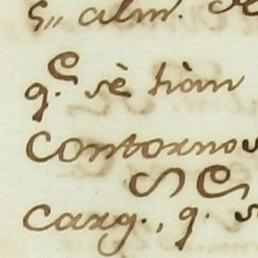 S,, alm.
q.e sè tian
contorno
carg., q.